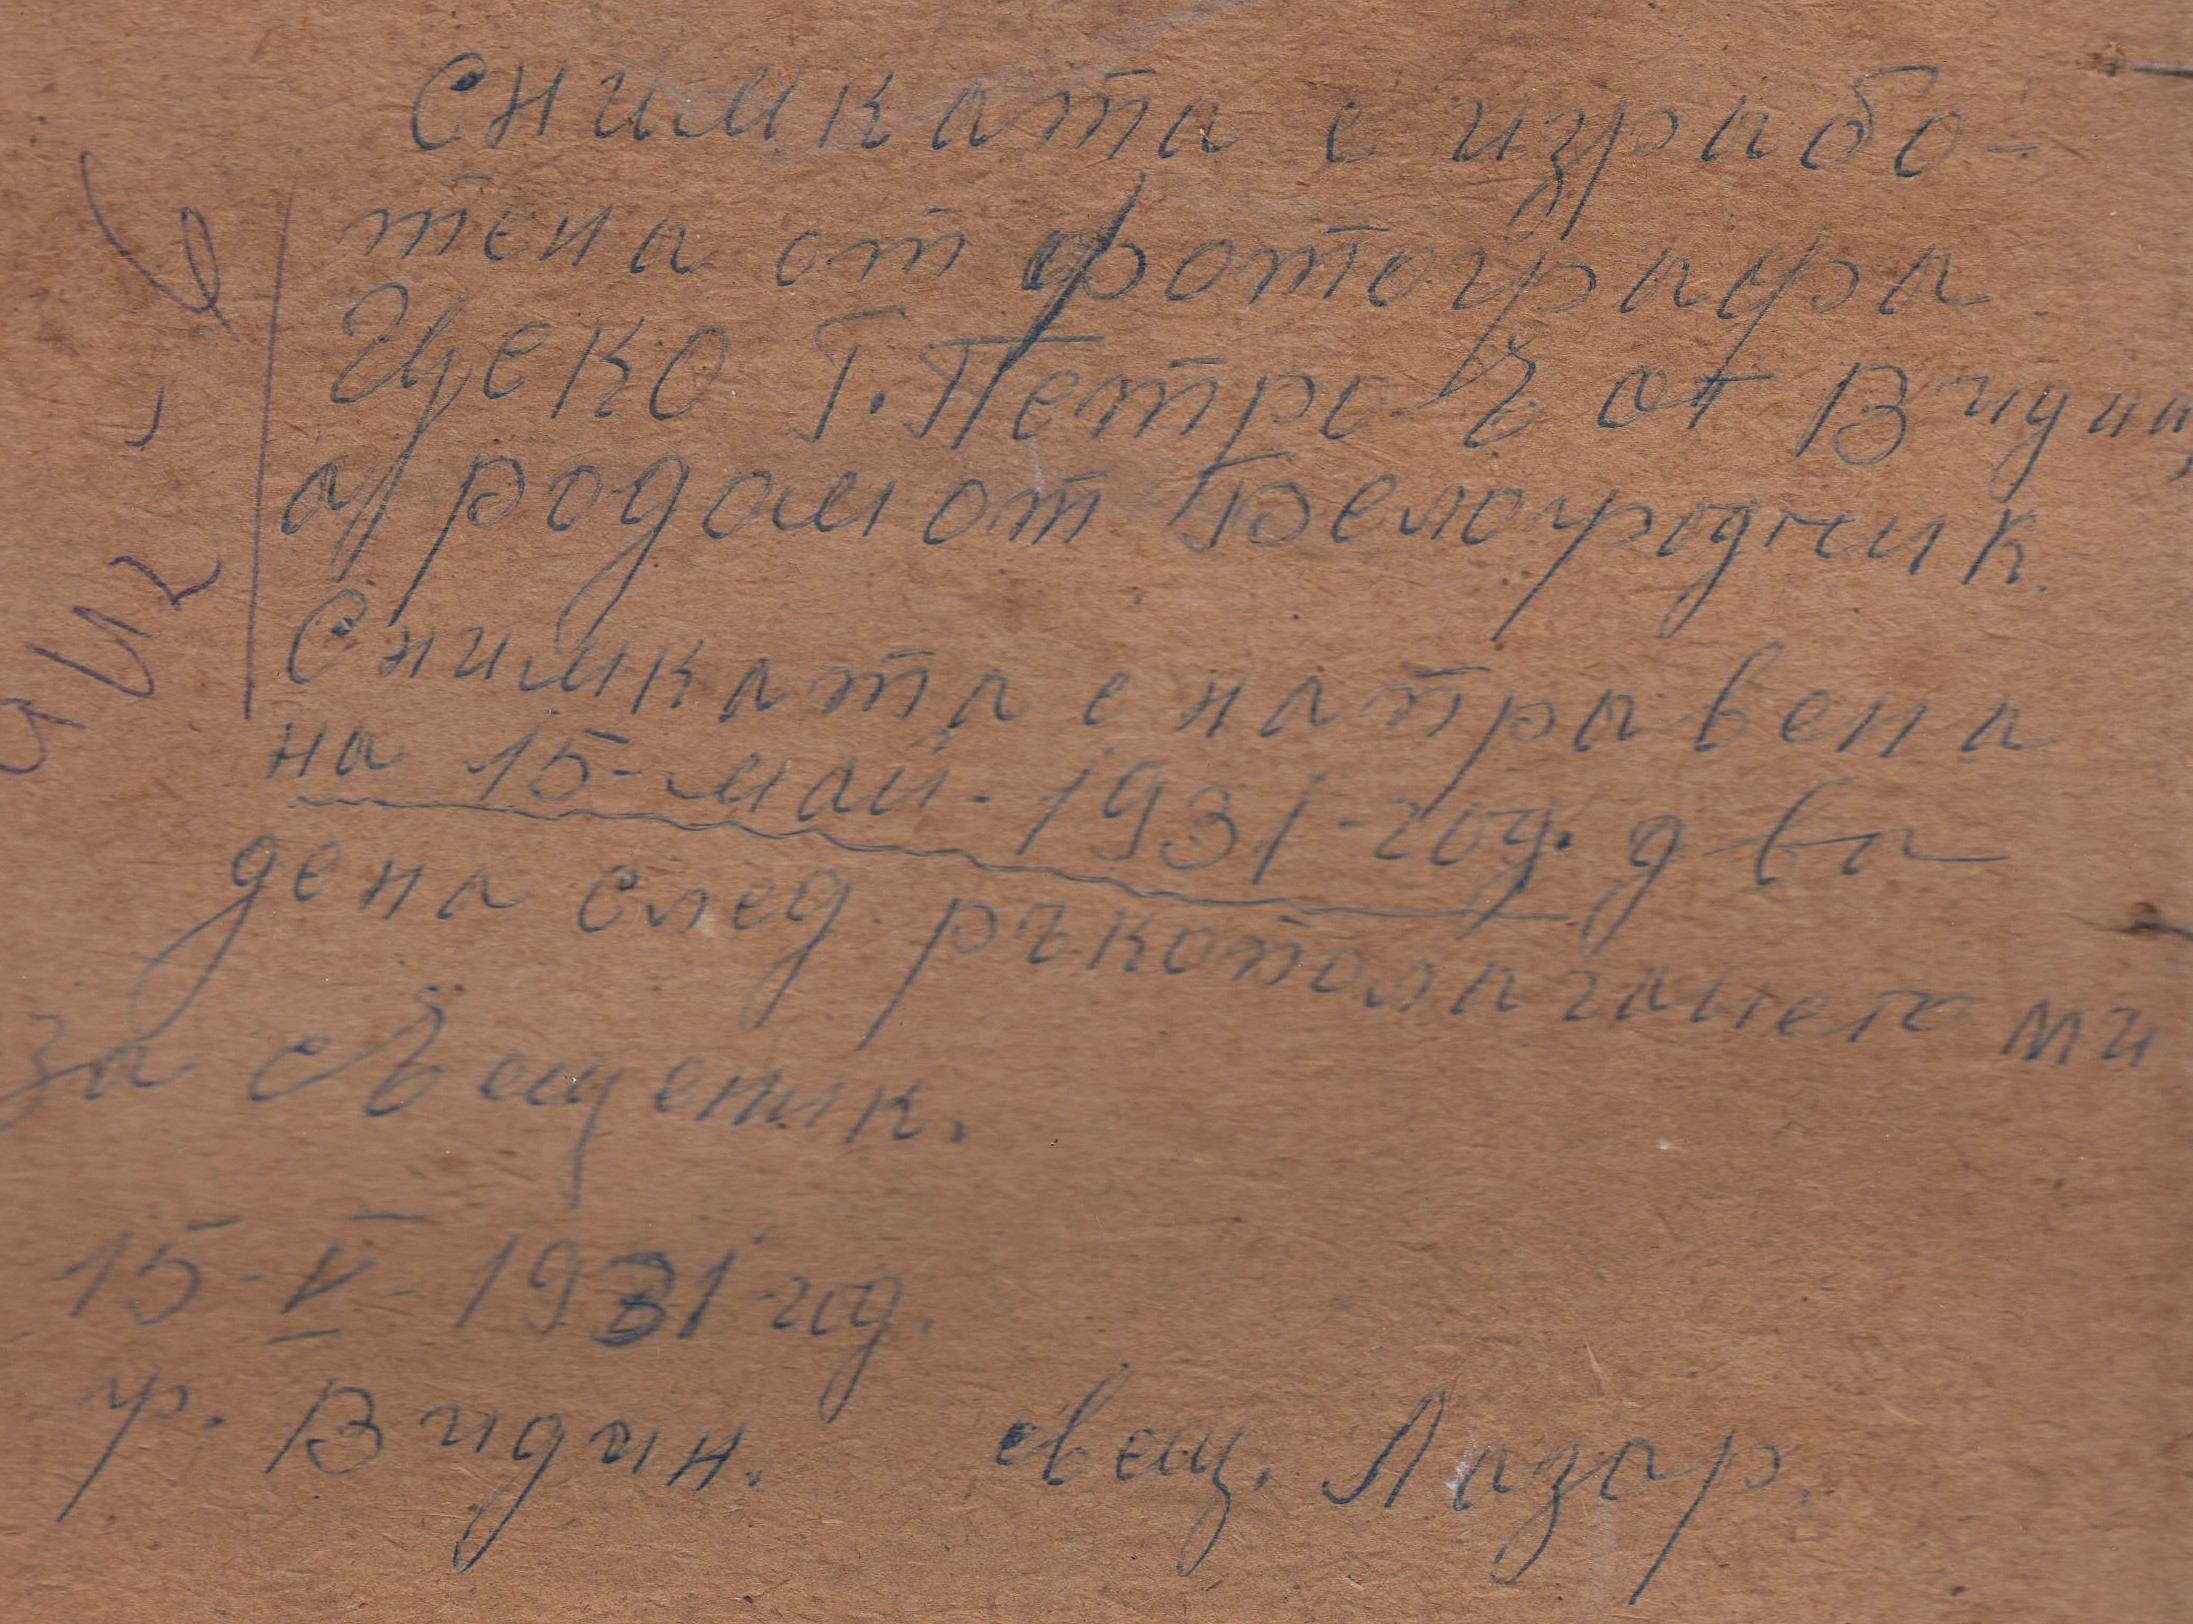 Снимката е израбо-
тена от фотографа
Цеко Т. Петров от Видин,
а родом от Белоградчик.
Снимката е направена
на 15-май. 1931-год. два
дена след ръкополагането ми
за свещеник.
15-V-1931 год.
гр. Видин. свещ. Лазар.